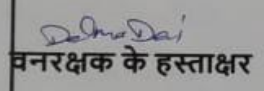 वनरक्षक के हस्ताक्षर